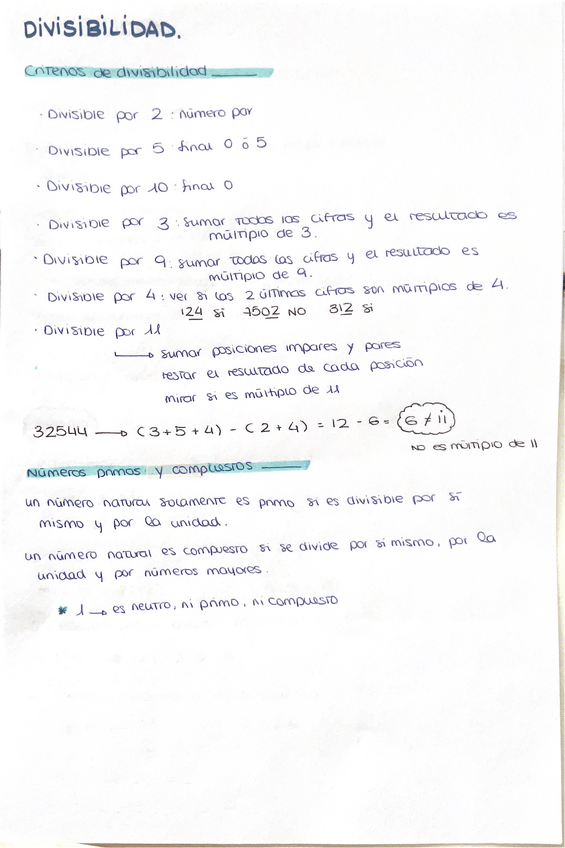 DIVISIBILIDAD.
Criterios de divisibilidad
· Divisible por 2 : número par
· Divisible por 5 : final 0 ó 5
· Divisible por 10 : final 0
· Divisible por 3 : sumar todas las cifras y el resultado es
múltiplo de 3.
· Divisible por 9 : sumar todas las cifras y el resultado es
múltiplo de 9.
· Divisible por 4 : ver si las 2 últimas cifras son múltiplos de 4.
124 si 7502 NO 312 si
· Divisible por 11
→ sumar posiciones impares y pares
restar el resultado de cada posición
mirar si es múltiplo de 11
32544 → (3+5+4) - (2+4) = 12 - 6 = 6 ≠ 11
NO es múltiplo de 11
Números primos y compuestos
un número natural solamente es primo si es divisible por sí
mismo y por la unidad.
un número natural es compuesto si se divide por si mismo, por la
unidad y por números mayores.
* 1 → es neutro, ni primo, ni compuesto